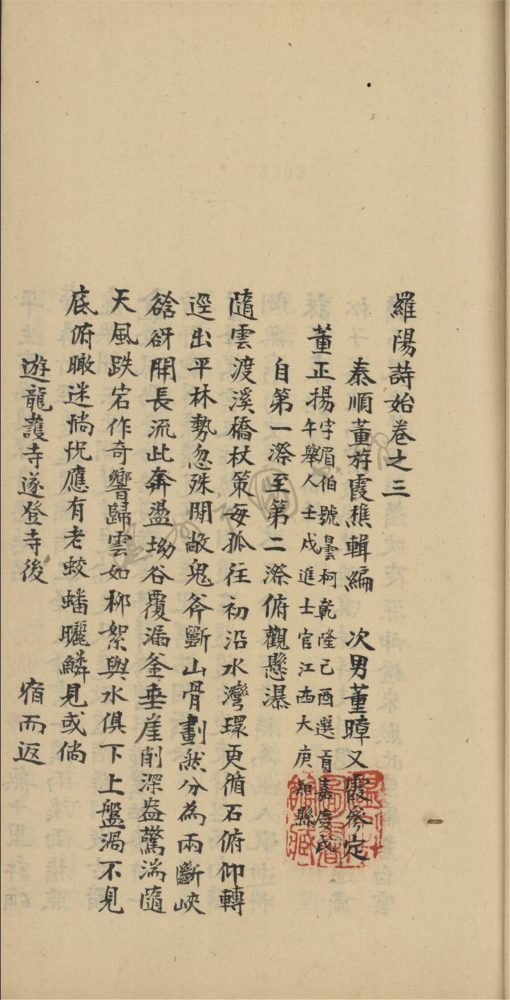 羅陽詩始卷之三
泰順董斿霞樵輯編 次男董暲又霞參定
董正揚字眉伯號曇柯乾隆己酉選貢嘉慶戊
午舉人壬戌進士官江西大庾知縣
自第一漈至第二漈俯觀懸瀑
隨雲渡溪橋杖策每孤往初沿水灣環更循石俯仰轉
逕出平林勢忽殊開敞鬼斧斸山骨劃然分為兩斷峽
谽谺開長流此奔盪坳谷覆漏釜垂崖削深盎驚湍隨
天風跌宕作奇響歸雲如柳絮與水俱下上盤渦不見
底俯瞰迷惝怳應有老蛟蟠曬鱗見或倘
遊龍護寺遂登寺後 宿而返